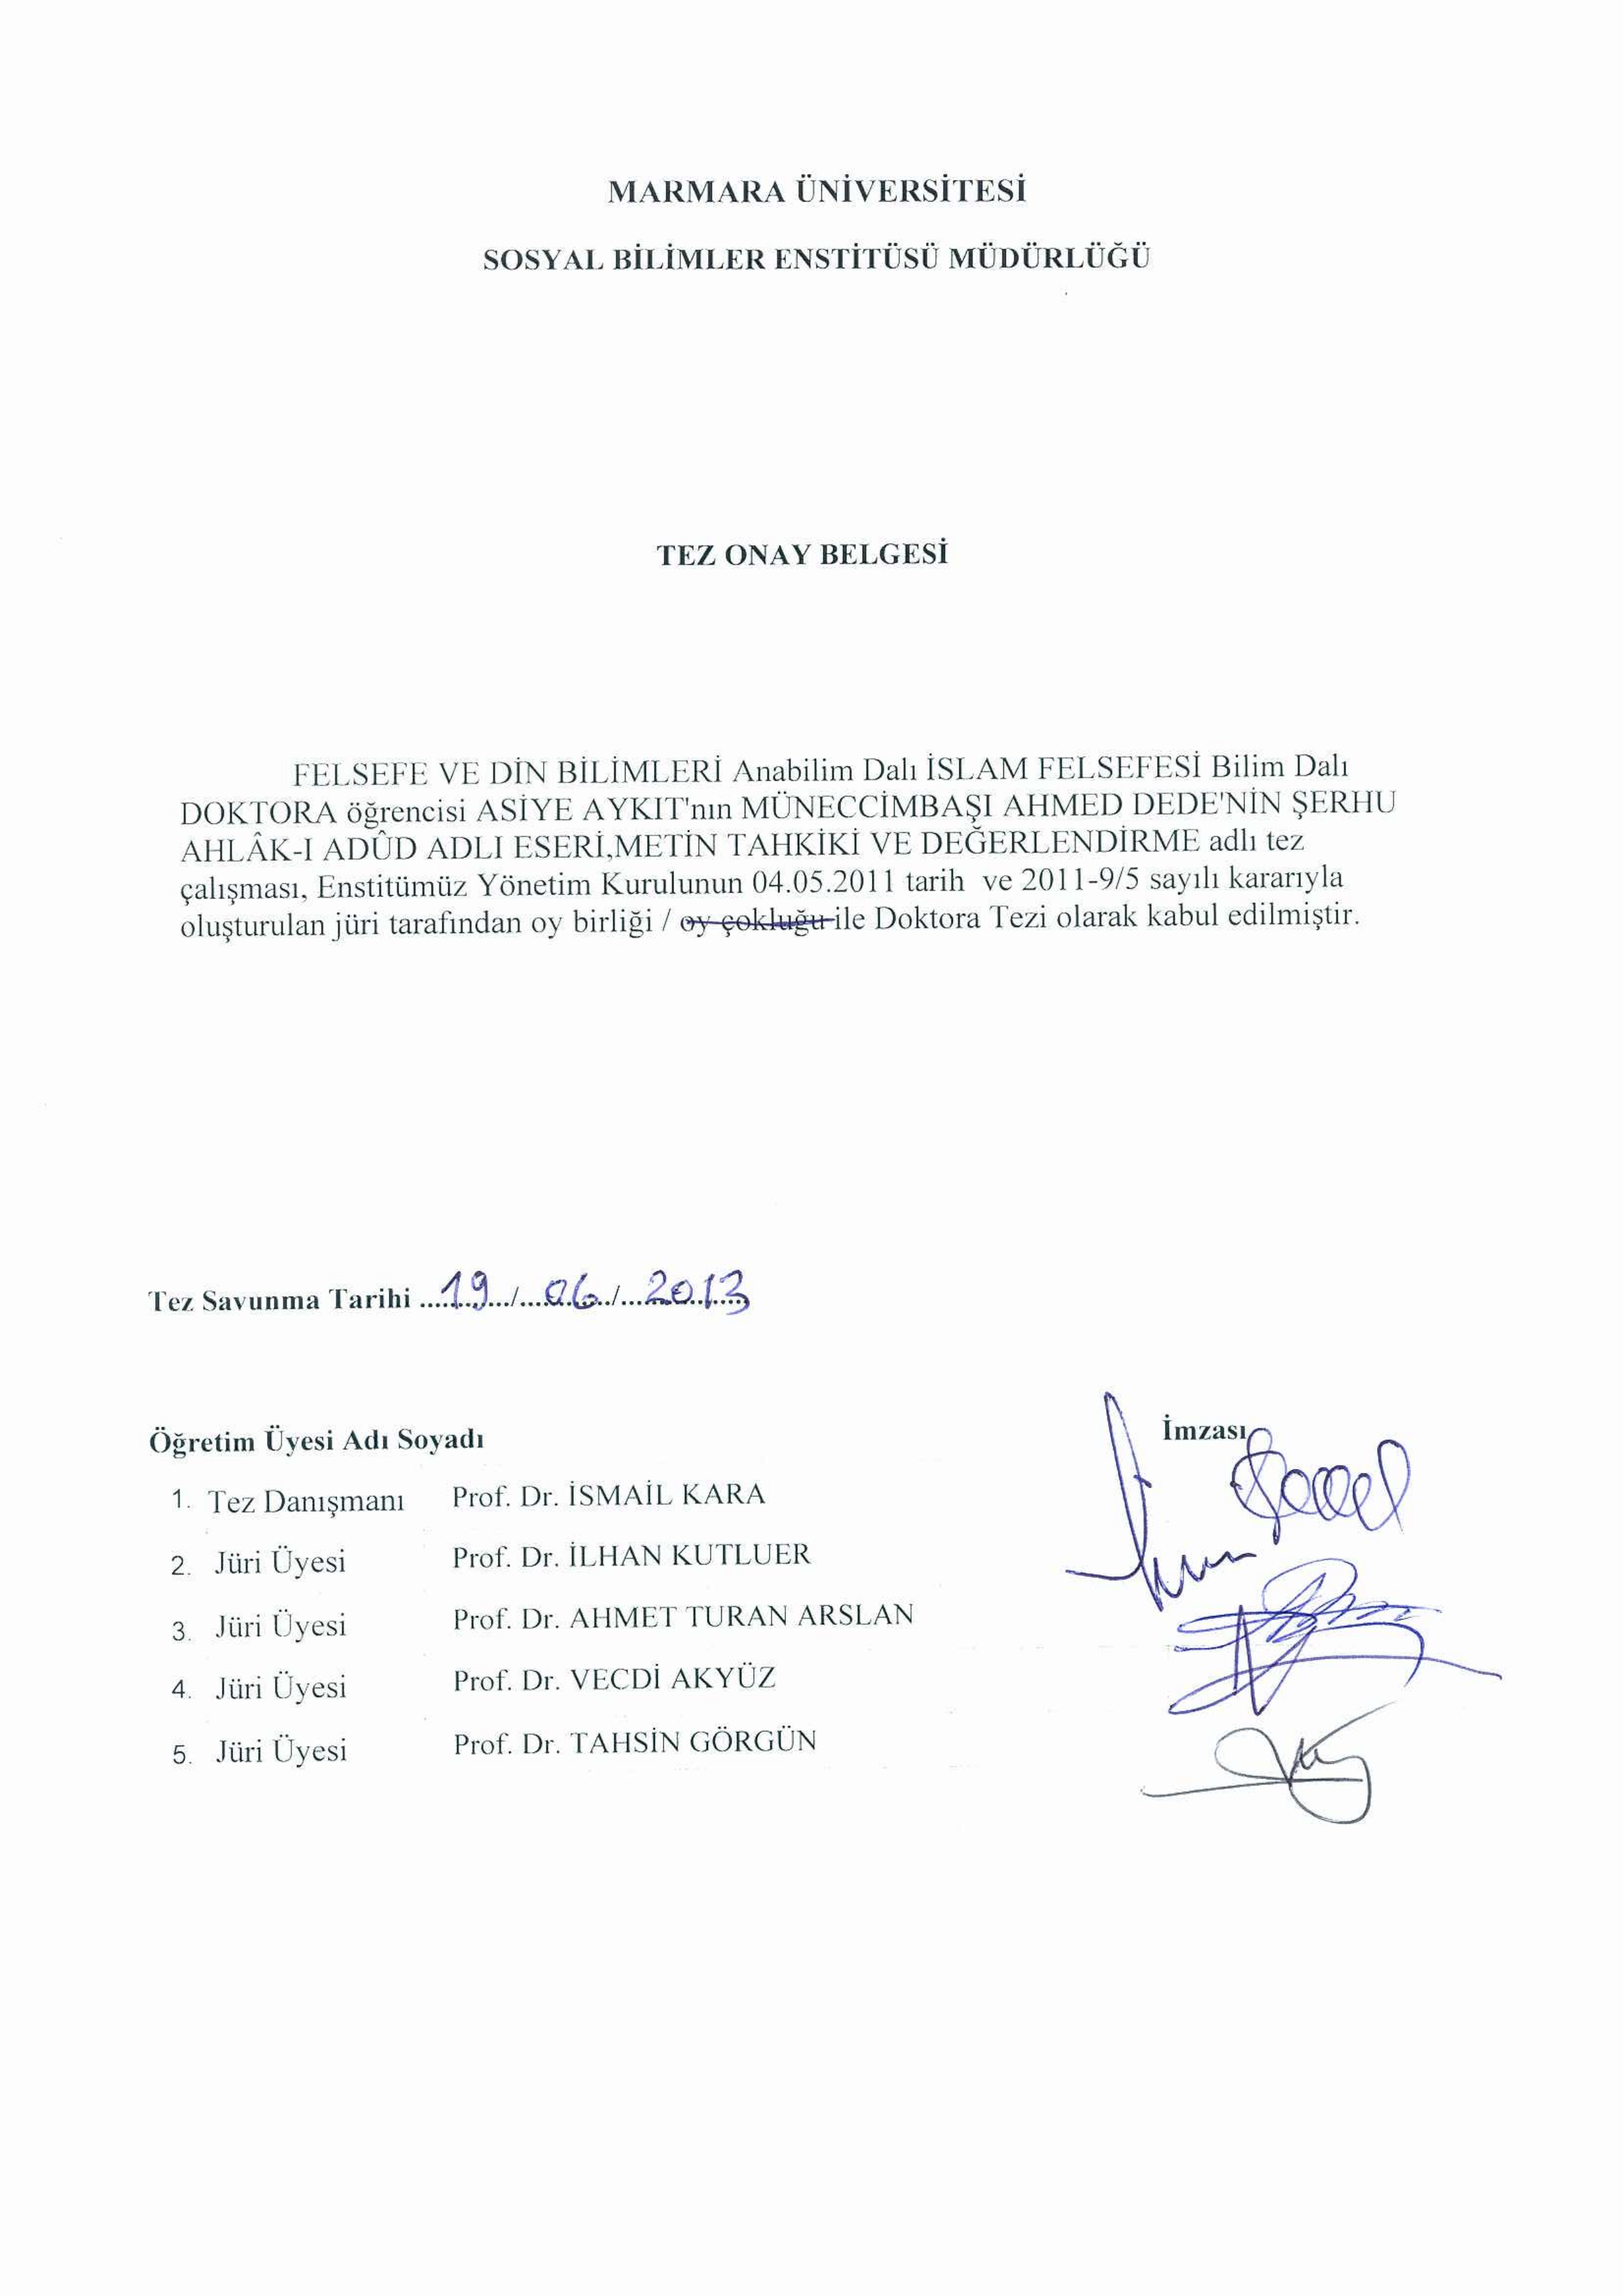 MARMARA ÜNİVERSİTESİ
SOSYAL BİLİMLER ENSTİTÜSÜ MÜDÜRLÜĞÜ
TEZ ONAY BELGESİ
FELSEFE VE DİN BİLİMLERİ Anabilim Dalı İSLAM FELSEFESİ Bilim Dalı
DOKTORA öğrencisi ASİYE AYKIT'nın MÜNECCİMBAŞI AHMED DEDE'NİN ŞERHU
AHLÂK-I ADÛD ADLI ESERİ,METİN TAHKİKİ VE DEĞERLENDİRME adlı tez
çalışması, Enstitümüz Yönetim Kurulunun 04.05.2011 tarih ve 2011-9/5 sayılı kararıyla
oluşturulan jüri tarafından oy birliği / oy çokluğu ile Doktora Tezi olarak kabul edilmiştir.
Tez Savunma Tarihi ....19..../....06..../....2013....
Öğretim Üyesi Adı Soyadı İmzası
1. Tez Danışmanı Prof. Dr. İSMAİL KARA
2. Jüri Üyesi Prof. Dr. İLHAN KUTLUER
3. Jüri Üyesi Prof. Dr. AHMET TURAN ARSLAN
4. Jüri Üyesi Prof. Dr. VECDİ AKYÜZ
5. Jüri Üyesi Prof. Dr. TAHSİN GÖRGÜN